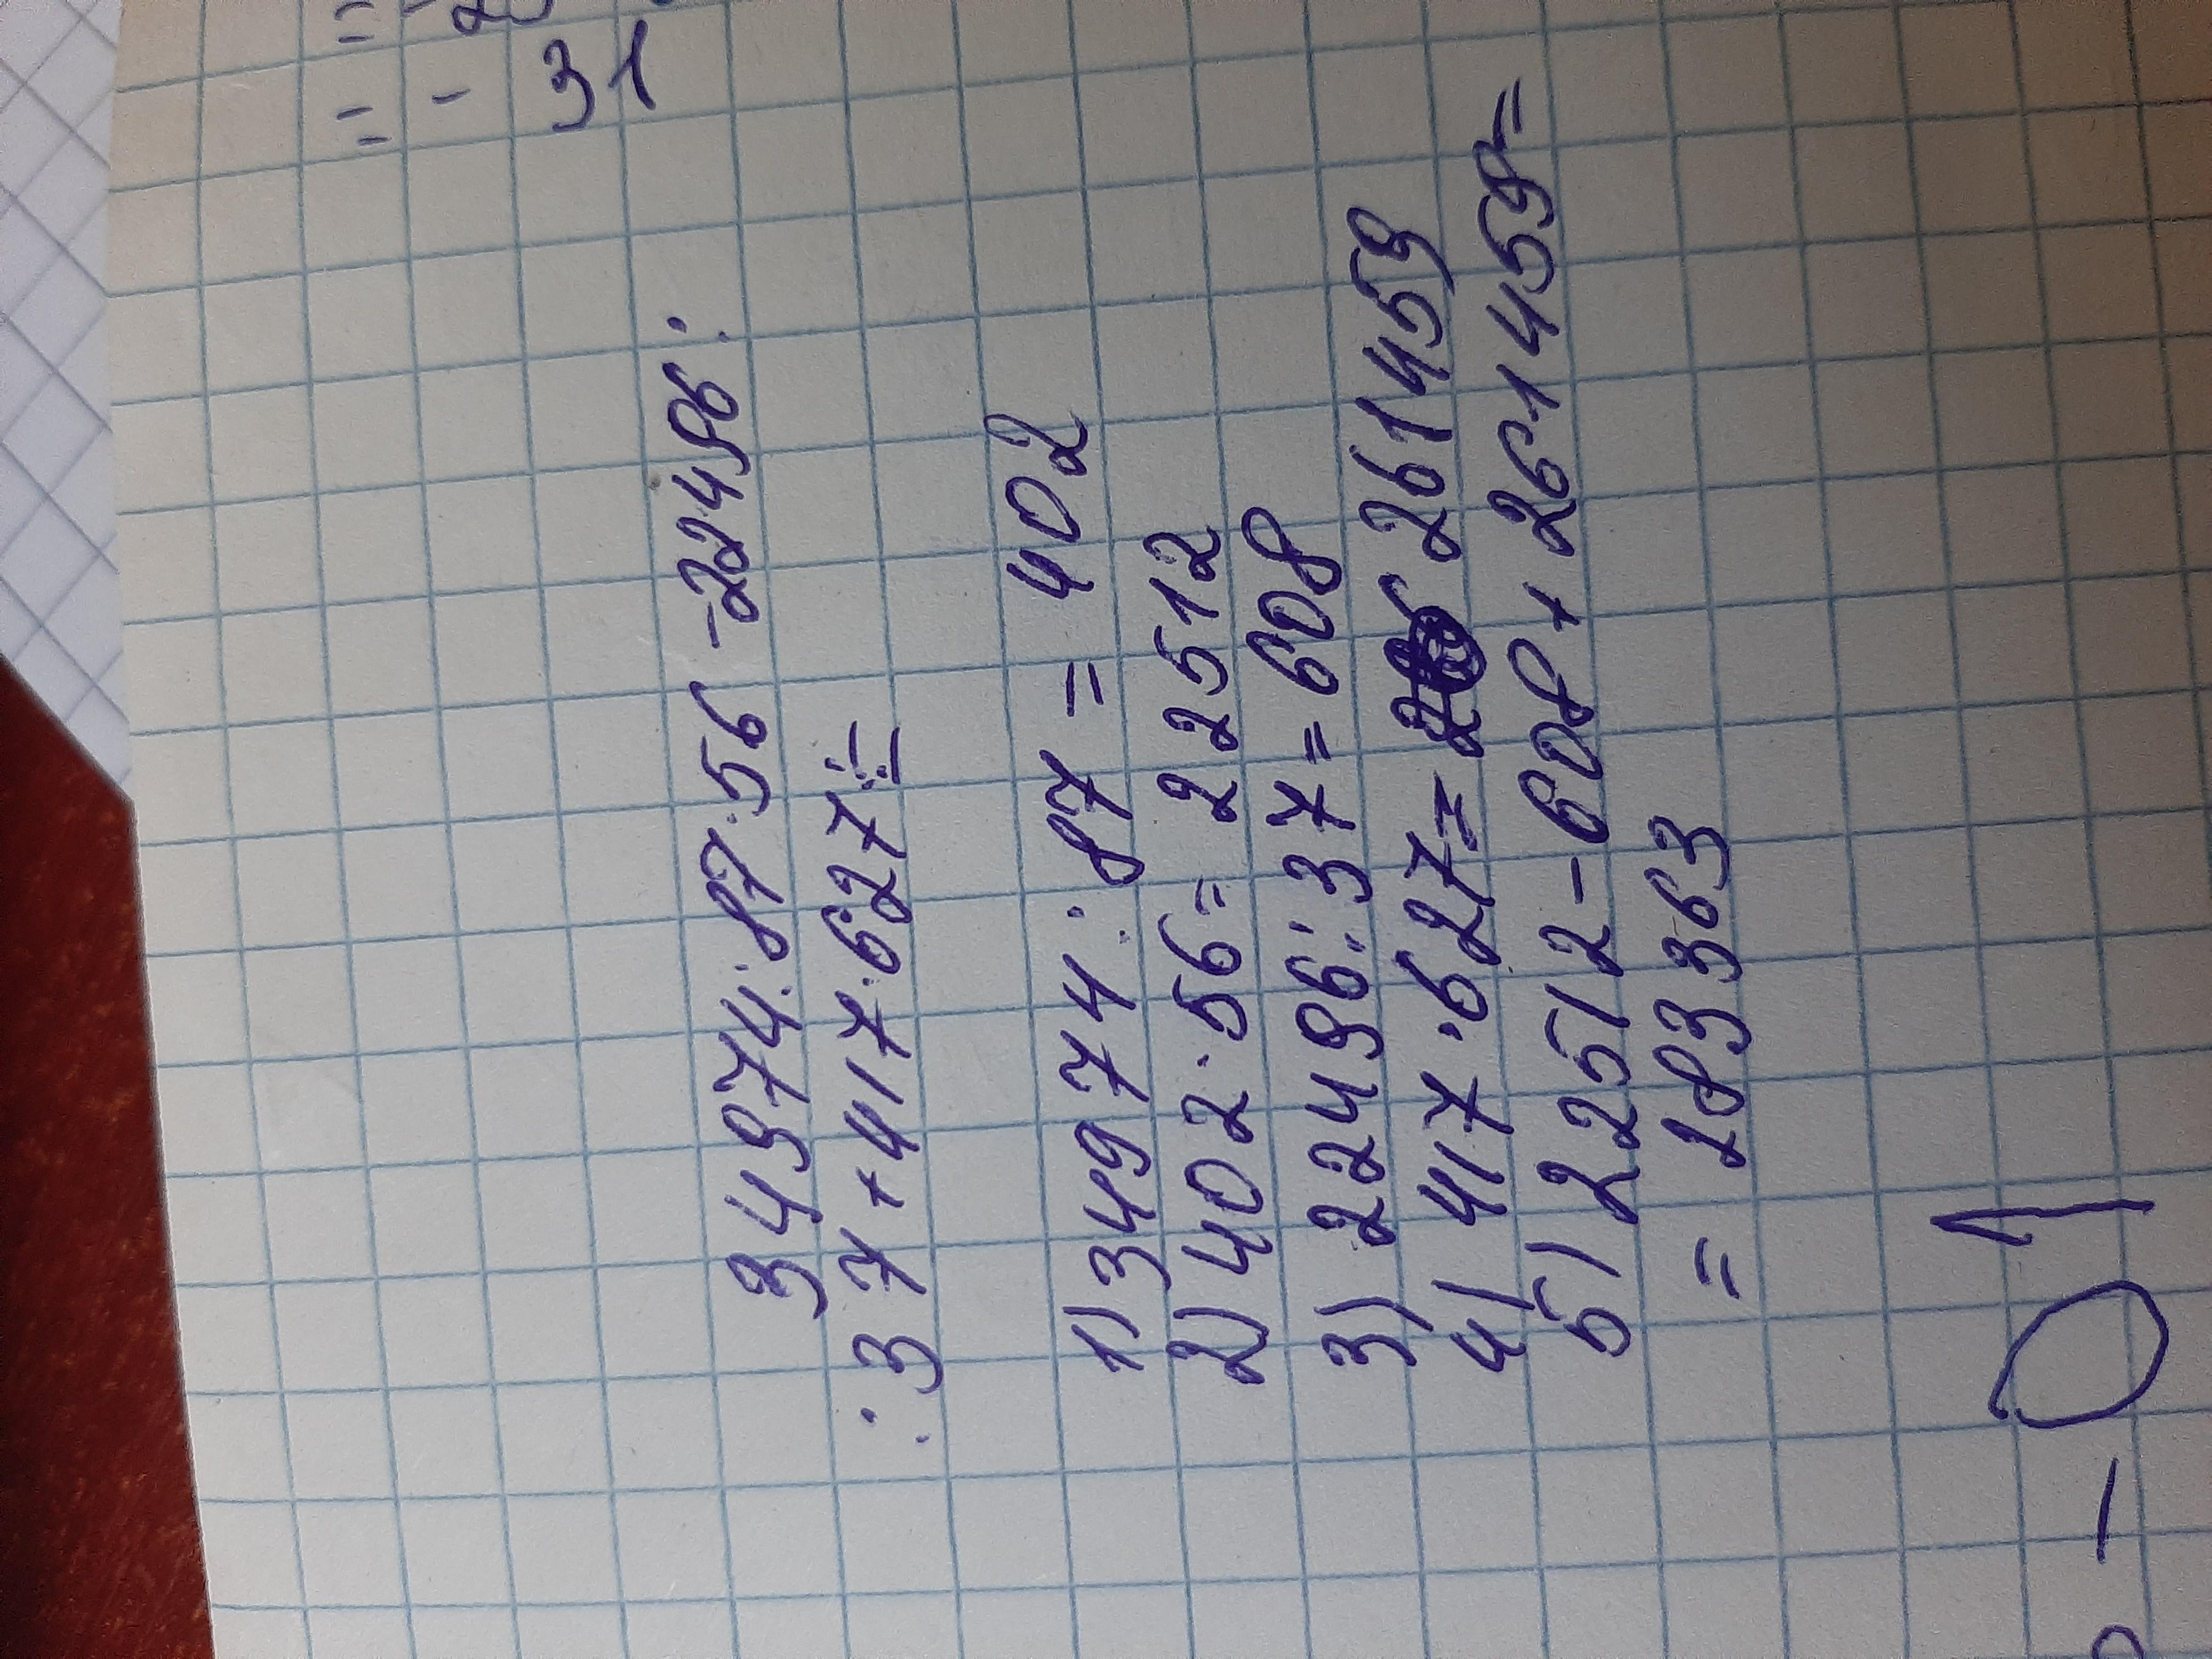 31
34974:87·56-22496:
:37+417·627=
1) 34974:87=402
2) 402·56=22512
3) 22496:37=608
4) 417·627= 261459
5) 22512-608+261459=
= 283363
- 01